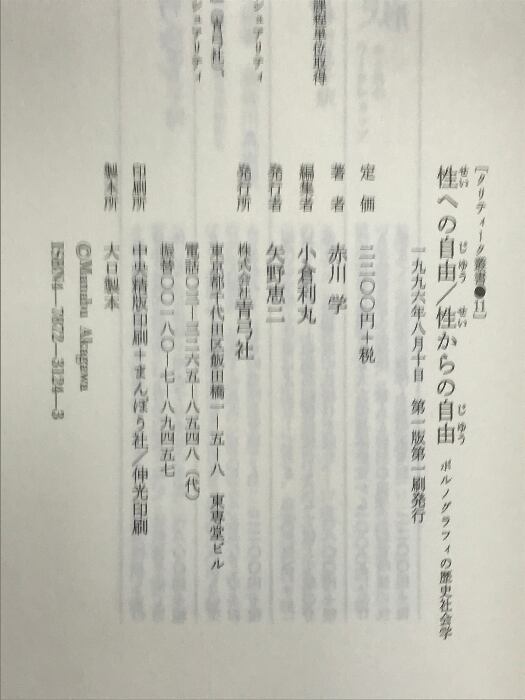 [クリティーク叢書●11]
性への自由/性からの自由 ポルノグラフィの歴史社会学
せい じゆう せい じゆう
一九九六年八月十日 第一版第一刷発行
定価 二二〇〇円+税
著者 赤川 学
編集者 小倉利丸
発行者 矢野恵二
発行所 株式会社青弓社
東京都千代田区飯田橋一―五―八 東専堂ビル
電話〇三―三二六五―八五四八(代)
振替〇〇一八〇―七―八九四五七
印刷所 中央精版印刷+まんぼう社/伸光印刷
製本所 大口製本
©Manabu Akagawa
ISBN4―7872―3124―3
課程単位取得
シュアリティ
『青弓社』、
シュアリティ